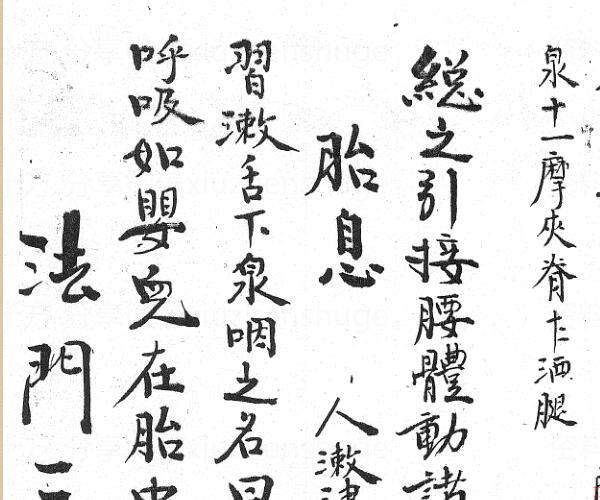 泉十一摩夾脊十二洒腿
總之引接腰體動諸
胎息
人漱津
習漱舌下泉咽之名曰
呼吸如嬰兒在胎中
法門二